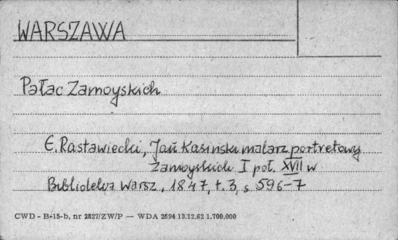 WARSZAWA
Pałac Zamoyskich
E. Rastawiecki, Jań Kasinski malarz portretowy
Zamoyskich I poł. XVII w
Biblioteka Warsz, 1847, t. 3, s 596-7
CWD - B-15-b, nr 2827/ZW/P — WDA 2694 13.12.62 1.700.000